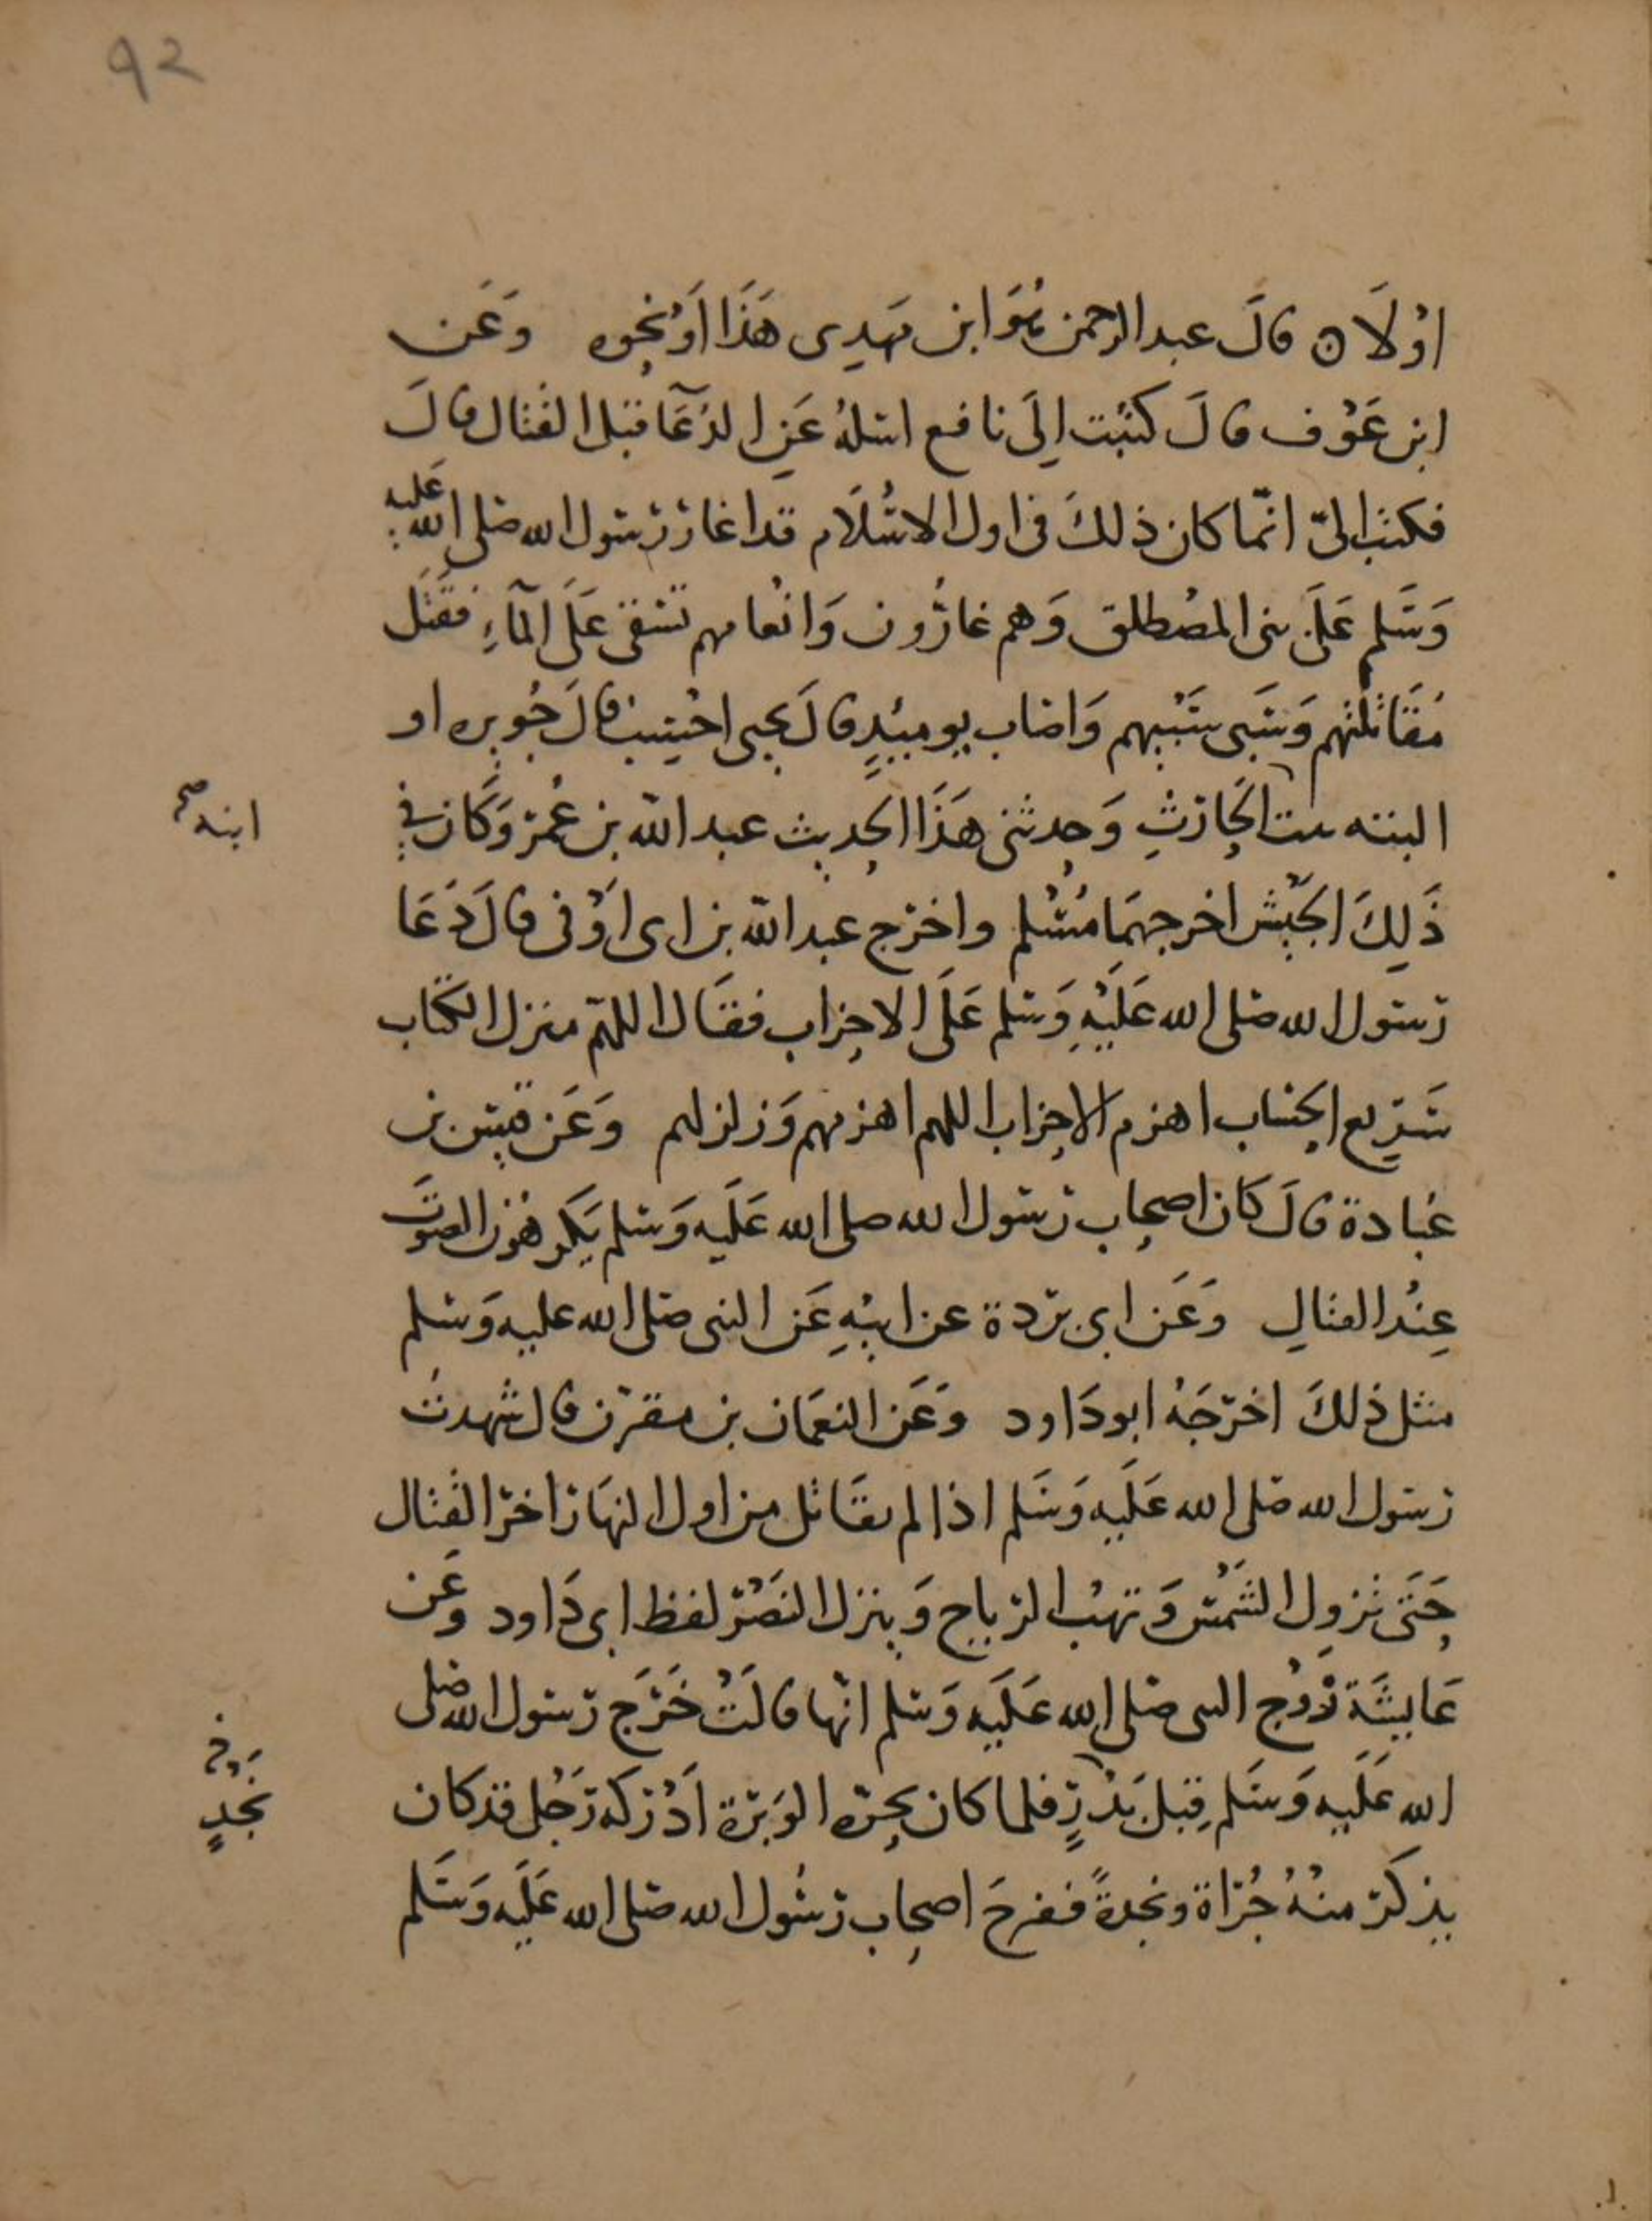 92
اوْلَا ۞ قالَ عبد الرحمن هُوَ ابن مَهدِى هَذَا اَوْ نَحوه وَعَن
ابن عَوْف قالَ كتبْت اِلَى نافع اسئلهُ عَنِ الدُعَآ قبل القتال قالَ
فكتب الىّ انّما كان ذلكَ فى اول الاسْلَام قد اغار رسول الله صلى الله عليه
وَسَلم عَلَى بنى المصْطلق وَهم غارُّون وَانْعامهم تسْقى عَلَى المَآءِ فقَتَل
مُقَاتلتهم وَسَبَى سَبْيهم وَاصَاب يوميئِذٍ قالَ يحيى احْسِبه قالَ جُويره او
البنته بنت الحَارثِ وَحدثنى هَذَا الحديث عبد الله بن عُمر وَكَان فى
ابنه صح
ذَلِكَ الجَيْش اخرجهمَا مُسْلم واخرج عبد الله بن ابى اَوْفى قالَ دَعَا
رسول الله صلى الله عَلَيْهِ وَسلم عَلَى الاحزاب فقَال اللهمّ منزل الكتَاب
سَرِيع الحسَاب اهزم الاحزاب اللهم اهزمهم وَزلزلهم وَعَن قيس بن
عُبادة قالَ كان اصحاب رسول الله صلى الله عَلَيه وَسلم يَكرهُون الصوَت
عِنْد القتالِ وَعَن ابى بردة عن ابيْهِ عَن النبى صلى الله عليه وَسلم
مثل ذلكَ اخرَجَهُ ابو دَاود وَعَن النعمَان بن مقرن قال شهدتُ
رسول الله صلى الله عَلَيه وَسَلم اذا لم يقَاتل من اول النهَار اخر القتال
حَتَى تزول الشَمْس وَتهبْ الرياح وَينزل النَصْر لفظ ابى دَاود وعَن
عَايشَة زَوْج النبى صلى الله عَلَيه وَسلم انّها قالَتْ خَرَج رسول الله صلى
الله عَلَيه وَسَلم قِبل بَدْرٍ فلما كان بحرّه الوَبَرة اَدْركه رَجُل قد كان
نجْدٍ
يذكر منْهُ جُرْاة ونجدةً ففرحَ اصحاب رسُول الله صلى الله عَلَيه وَسَلم